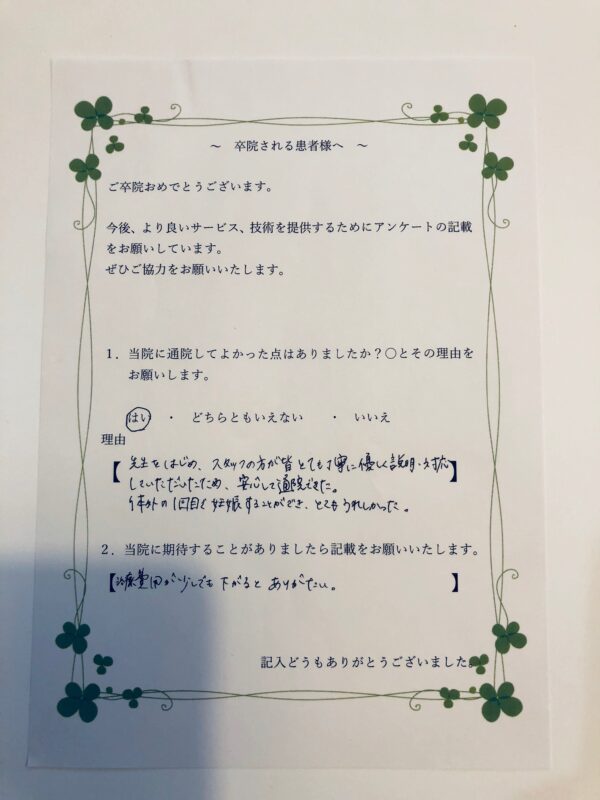 ～ 卒院される患者様へ ～
ご卒院おめでとうございます。
今後、より良いサービス、技術を提供するためにアンケートの記載
をお願いしています。
ぜひご協力をお願いいたします。
１．当院に通院してよかった点はありましたか？〇とその理由を
お願いします。
はい ・ どちらともいえない ・ いいえ
理由
【先生をはじめ、スタッフの方が皆とても丁寧に優しく説明・対応】
していただいたため、安心して通院できた。
体外の1回目で妊娠することができ、とてもうれしかった。
２．当院に期待することがありましたら記載をお願いいたします。
【治療費用が少しでも下がるとありがたい。】
記入どうもありがとうございました。